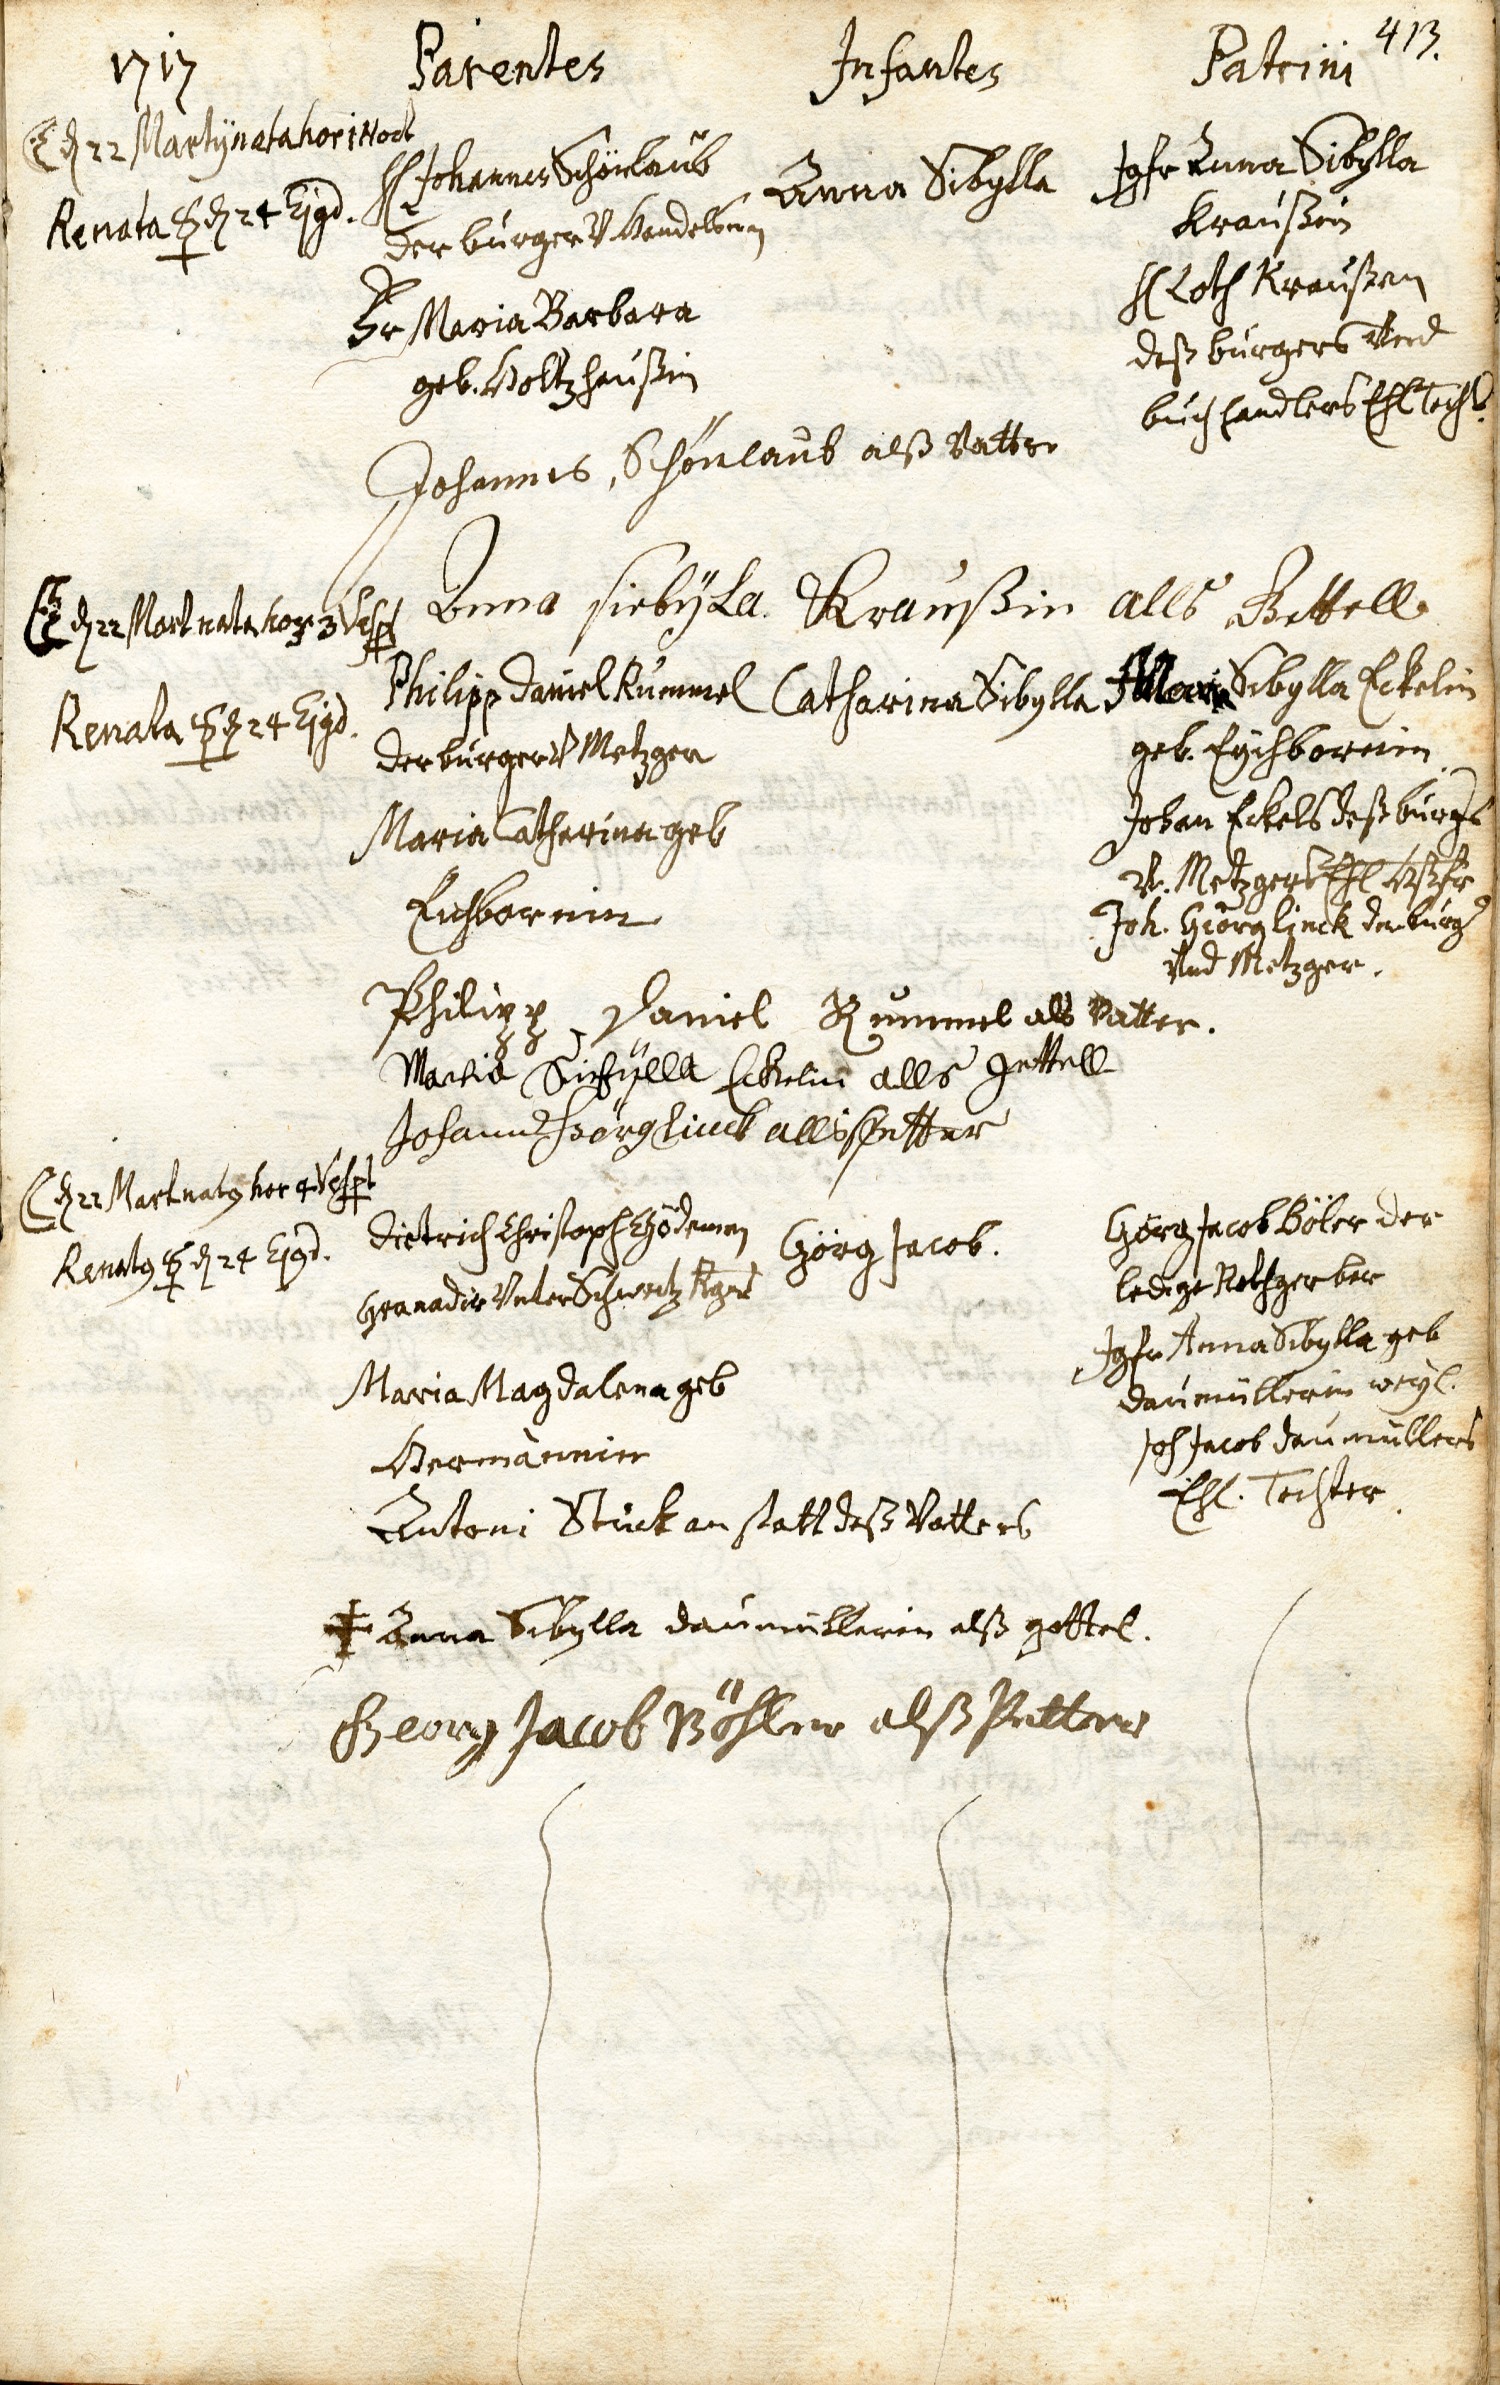 413.
1717 Parentes Infantes Patrini
☾ d 22 Martÿ nata hor 1 Noct
Renata ☿ d 24 Ejgd.
H Johannes Schönlaub
der burger V Handelsm
Fr Maria Barbara
geb. Holtzhaußin
Anna Sibylla
Jgfr Anna Sibylla
Kraußin
H Loth Kraußen
deß burgers Vnd
buchhandlers Ehl Tocht
Johannes Schönlaub alß Vatter
Anna siebÿLa Kraußin alls Gettell
☾ d 22 Mart nata hor 3 Vesp
Renata ☿ d 24 Ejgd.
Philipp Daniel Kummel
der burger V Metzger
Maria Catharina geb
Eichbornin
Catharina Sibylla
Maria Sibylla Eckelin
geb. Eychbornin
Johan Eckels deß burgs
V. Metzgers Ehl
Joh. Görg Linck der burg
Vnd Metzger.
Philipp Daniel Kummel als Vatter.
Maria Siebÿlla Eckelin alls gettell
Johann Görg Linck allß Petter
☾ d 22 Mart natg hor 4 Vesp
Renatg ☿ d 24 Ejgd.
Dietrich Christoph Gödeman
Granadir Vnter Schweitz
Maria Magdalena geb
Hermännin
Görg Jacob.
Görg Jacob Böler der
ledige Rothgerber
Jgfr Anna Sibylla geb
Daumüllerin weyl.
Joh Jacob Daumüllers
Ehl. Tochter
Antoni Stuck anstatt deß Vatters
Anna Sibylla Daumüllerin alß gettel.
Georg Jacob Böhler alß Petter